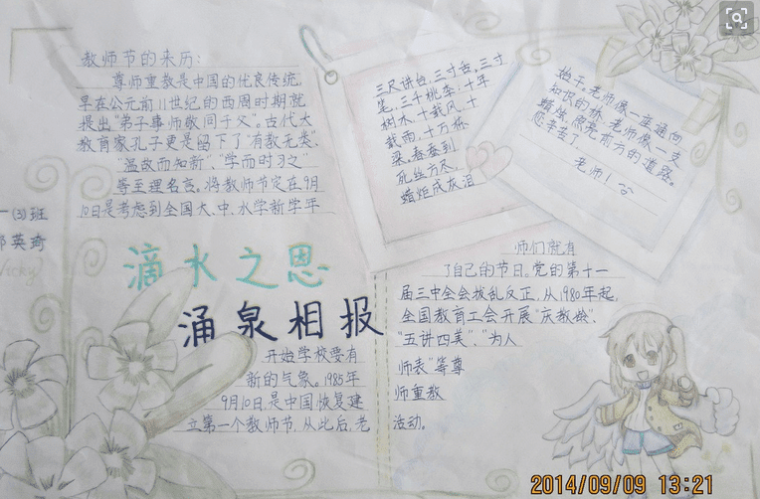 教师节的来历:
尊师重教是中国的优良传统,
早在公元前11世纪的西周时期就
提出“弟子事师敬同于父”。古代大
教育家孔子更是留下了“有教无类”.
“温故而知新”,“学而时习之”
等至理名言。将教师节定在9月
10日是考虑到全国大、中、小学新学年
开始学校要有
新的气象。1985年
9月10日,是中国恢复建
立第一个教师节,从此后,老
师们就有
了自己的节日。党的第十一
届三中全会拨乱反正,从1980年起,
全国教育工会开展“庆教龄”,
“五讲四美”,“为人
师表”等尊
师重教
活动。
三尺讲台,三寸舌,三寸
笔,三千桃李;十年
树木,十载风,十
载雨,十万栋
梁。春蚕到
死丝方尽,
蜡炬成灰泪
始干。老师像一座通向
知识的桥,老师像一支
蜡烛,照亮前方的道路。
您辛苦了,
老师!
滴水之恩
涌泉相报
一(3)班
英琦
Vicky
2014/09/09 13:21